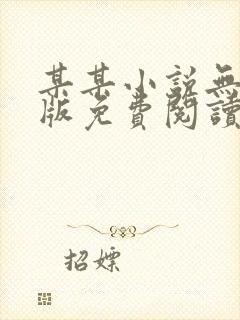 某某小說無
版免費閱讀
招嫖